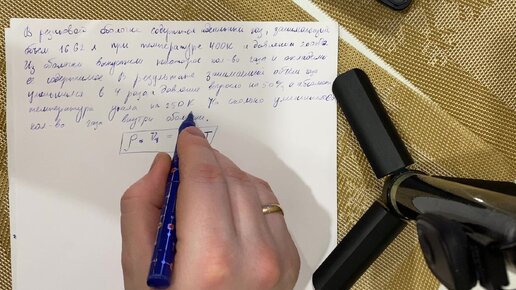 В резиновой оболочке содержится идеальный газ, занимающий
объём 16.62 л при температуре 400К и давлении 200 кПа
Из оболочки выпустили некоторое кол-во газа и охладили
её содержимое. В результате занимаемый объём газа
уменьшился в 4 раза, давление выросло на 50%, а абсолют.
температура упала на 250К. На сколько уменьшилось
кол-во газа внутри оболочки.
P₀ V₁ = T